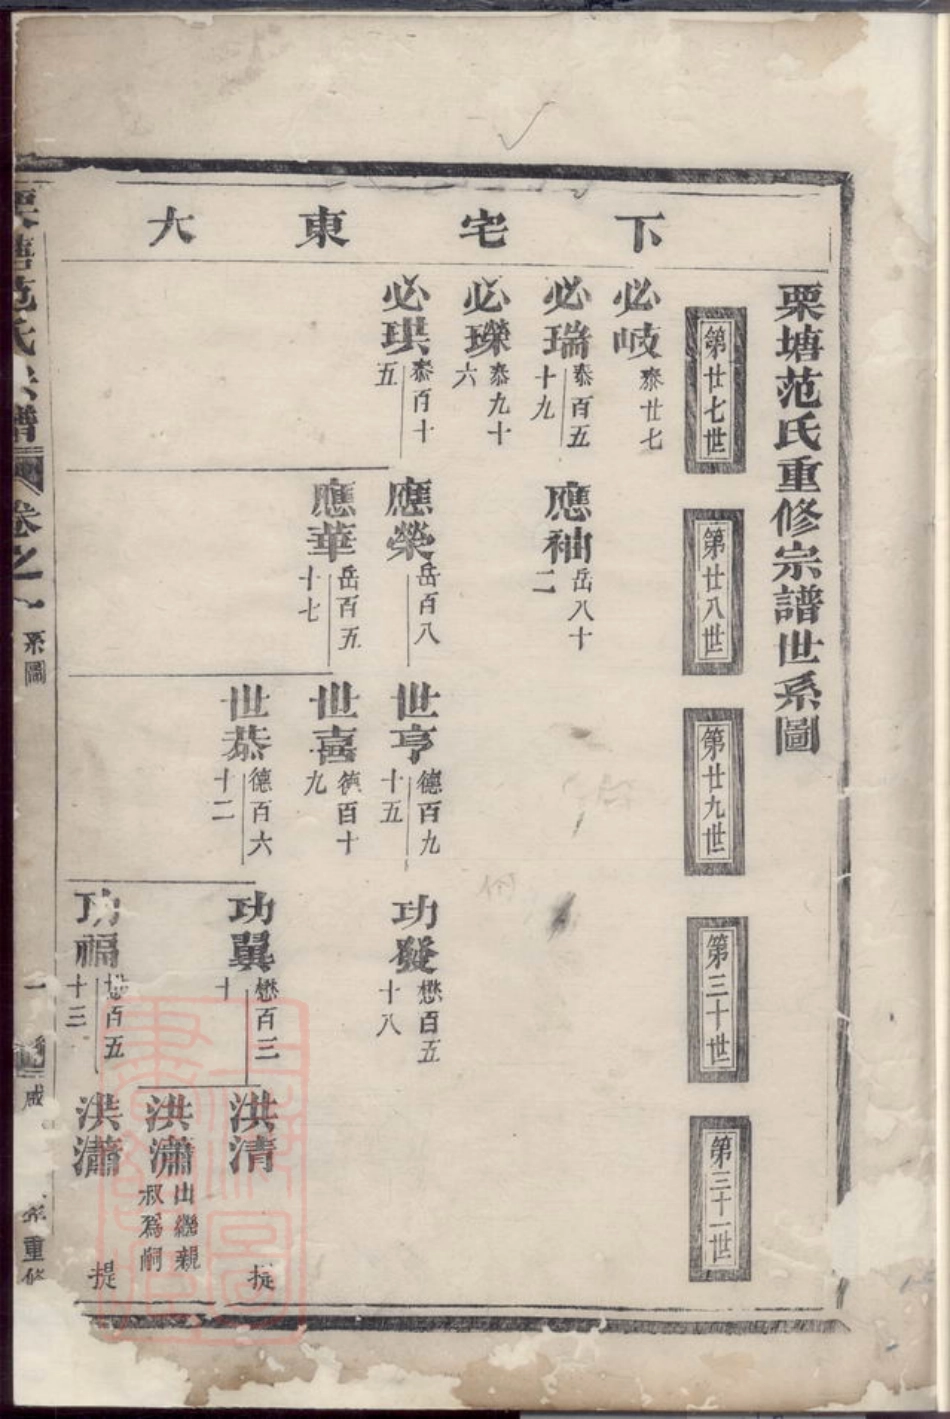 栗塘范氏重修宗譜世系圖
下宅東大
第廿七世
必岐
泰廿七
必瑞
泰百五
十九
必瓅
泰九十
六
必琪
泰百十
五
第廿八世
應袖
岳八十
二
應榮
岳百八
應華
岳百五
十七
第廿九世
世亨
德百九
十五
世喜
德百十
九
世恭
德百六
十二
第三十世
功發
懋百五
十八
功翼
懋百三
十
功福
懋百五
十三
第三十一世
洪清
提
洪瀟
出繼親
叔爲嗣
洪瀟
提
栗塘范氏宗譜
卷之一
系圖
一
咸
重修